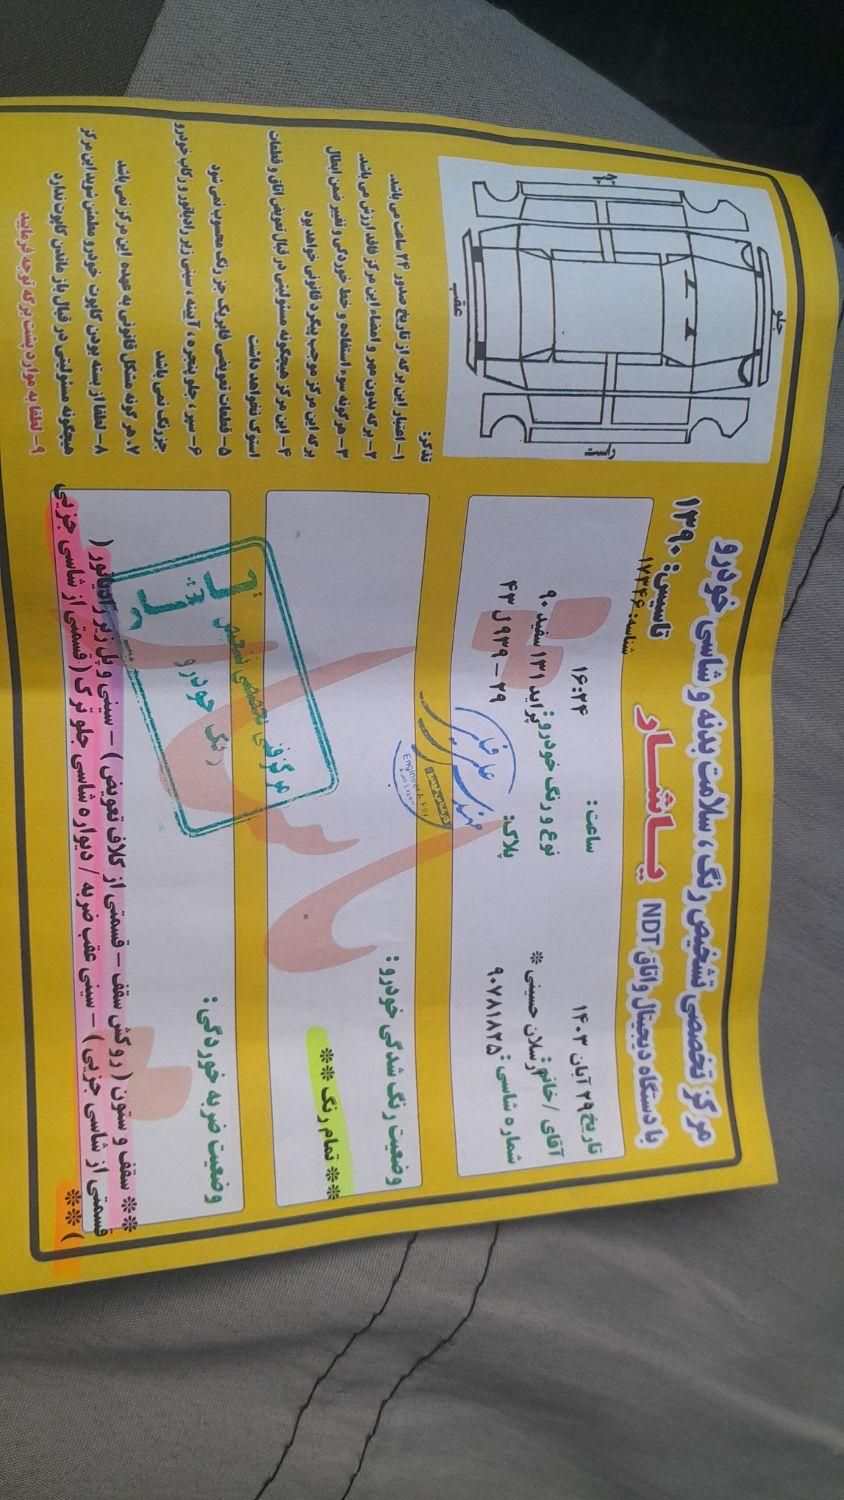 مرکز تخصصی تشخیص رنگ ، سلامت بدنه و شاسی خودرو
با دستگاه دیجیتال و اتاق NDT
یـاشـار
تاسیس: ۱۳۹۰
شناسه: ۱۷۳۴۶
تاریخ: ۲۹ آبان ۱۴۰۳
ساعت: ۱۶:۲۴
آقای / خانم: ارسلان حسینی *
نوع و رنگ خودرو: پراید ۱۳۱ سفید ۹۰
شماره شاسی: ۹۰۷۸۱۸۲۵
پلاک: ۲۹ - ۹۳۹ ل ۴۳
وضعیت رنگ شدگی خودرو:
** تمام رنگ **
وضعیت ضربه خوردگی:
** سقف و ستون ( روکش سقف - قسمتی از کلاف تعویض ) - سینی و پل زیر رادیاتور (
قسمتی از شاسی جزیی ) - سینی عقب ضربه / دیواره شاسی جلو ترک ( قسمتی از شاسی جزیی
) **
یـاشـار
مرکز فنی تخصصی تشخیص
رنگ خودرو
مهندس علی فیلی
Engineer A.Fily
جلو
عقب
چپ
راست
تذکر:
۱- اعتبار این برگه از تاریخ صدور ۲۴ ساعت می باشد.
۲- برگه بدون مهر و امضاء این مرکز فاقد ارزش می باشد.
۳- هر گونه سوء استفاده و خط خوردگی و تغییر ضمن ابطال
برگه این مرکز موجب پیگرد قانونی خواهد بود
۴- این مرکز هیچگونه مسئولیتی در قبال تعویض اتاق و قطعات
استوک نخواهد داشت
۵- قطعات تعویضی فابریک جز رنگ محسوب نمی شود
۶- سپر ، جلو پنجره ، آیینه ، سینی زیر رادیاتور و رکاب خودرو
جز رنگ نمی باشد
۷- هر گونه مشکل قانونی به عهده این مرکز نمی باشد
۸- لطفا از بسته بودن کاپوت خودرو مطمئن شوید این مرکز
هیچگونه مسئولیتی در قبال باز ماندن کاپوت ندارد
۹- لطفا به موارد پشت برگه توجه فرمایید